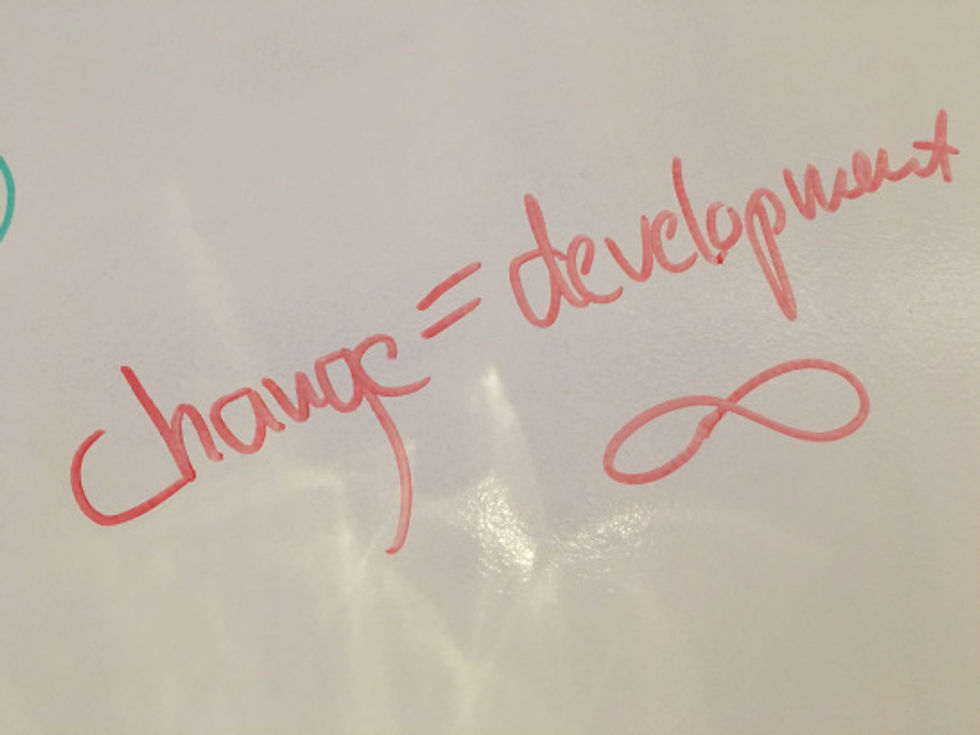 change = development
∞